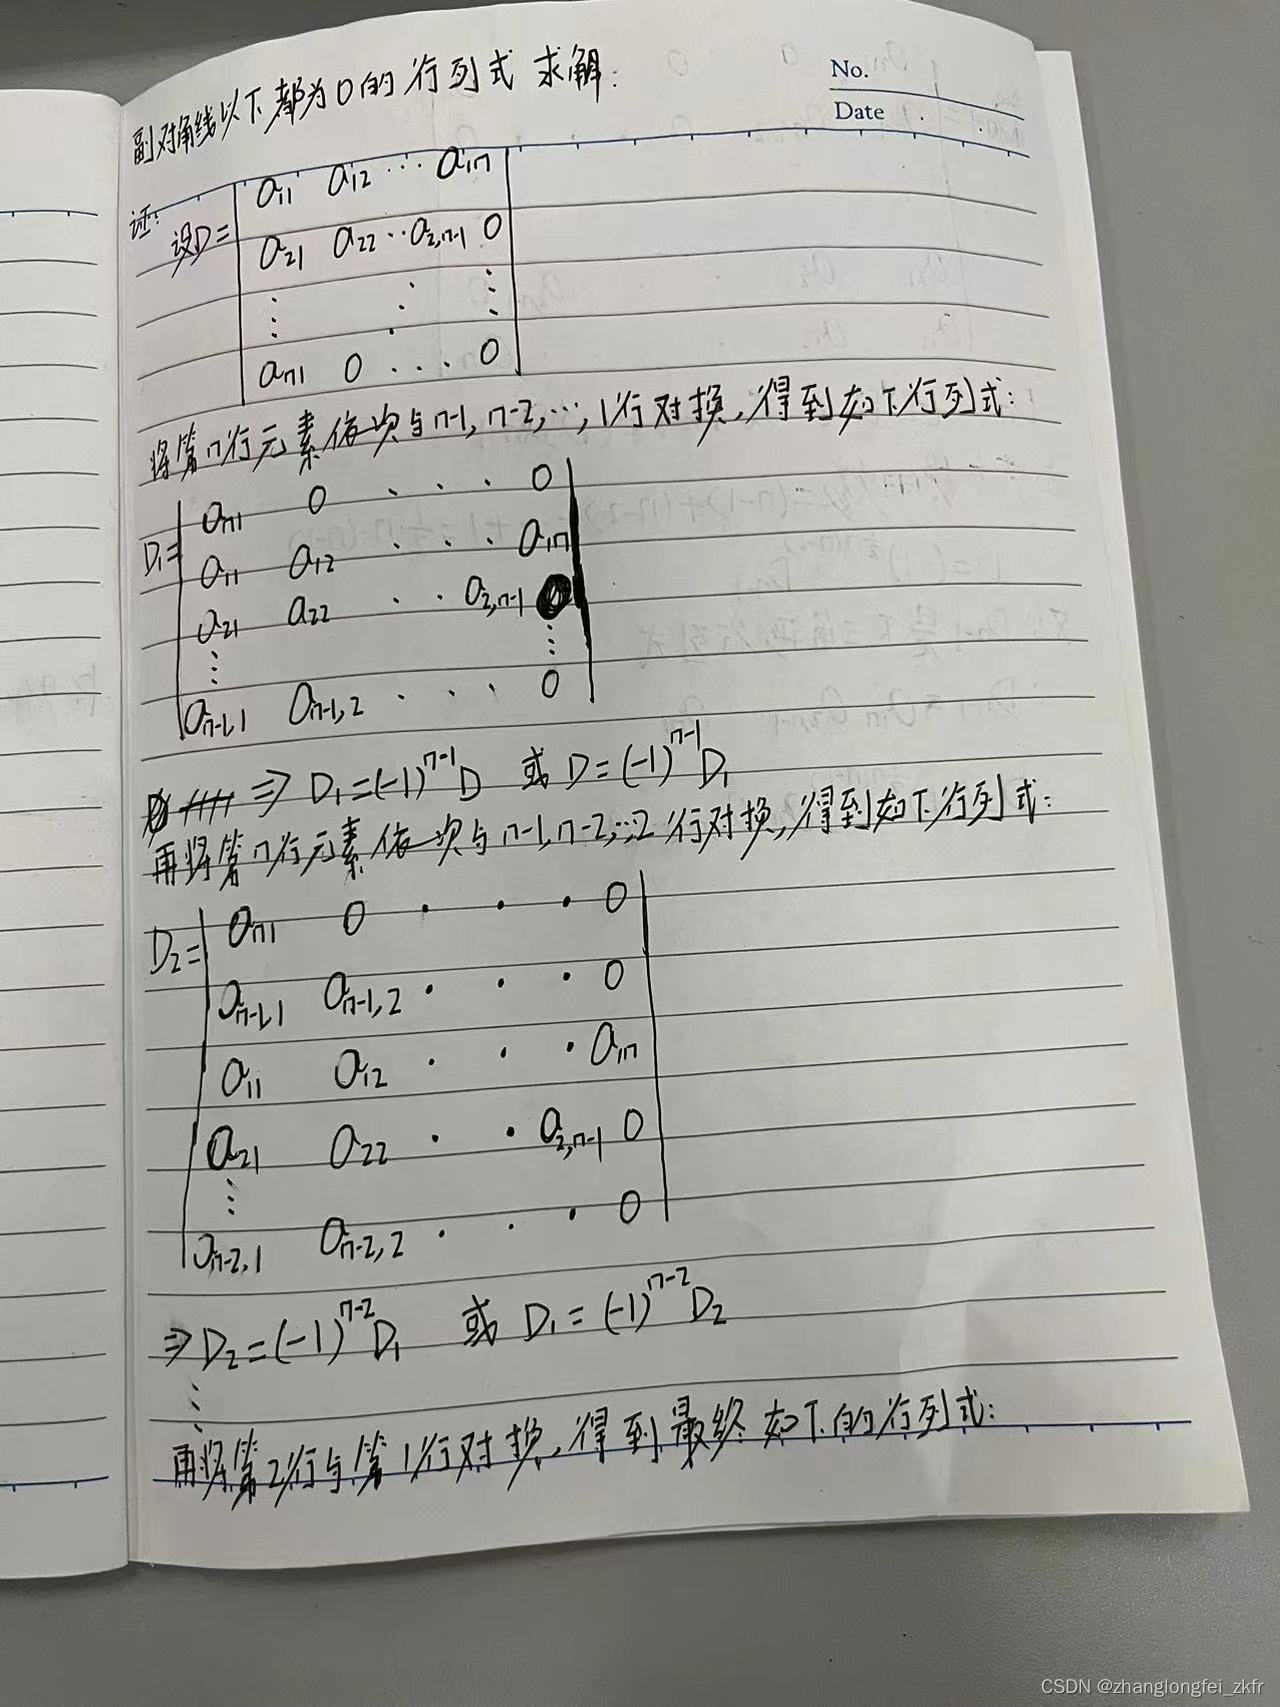 副对角线以下都为0的行列式 求解:
No.
Date
证:
设D=
a11 a12 ··· a1n
a21 a22 ·· a2,n-1 0
⋮ ⋰ ⋮
an1 0 ... 0
将第n行元素依次与n-1, n-2, ···, 1行对换, 得到如下行列式:
D1=
an1 0 · · · 0
a11 a12 · · · a1n
a21 a22 · · a2,n-1
⋮ ⋮
an-1,1 an-1,2 · · · 0
⇒ D1=(-1)^n-1 D 或 D=(-1)^n-1 D1
再将第n行元素依次与n-1, n-2, ··· 2行对换, 得到如下行列式:
D2=
an1 0 · · · 0
an-1,1 an-1,2 · · · 0
a11 a12 · · · a1n
a21 a22 · · a2,n-1 0
⋮
an-2,1 an-2,2 · · · 0
⇒ D2=(-1)^n-2 D1 或 D1=(-1)^n-2 D2
⋮
再将第2行与第1行对换, 得到最终如下的行列式:
CSDN @zhanglongfei_zkfr